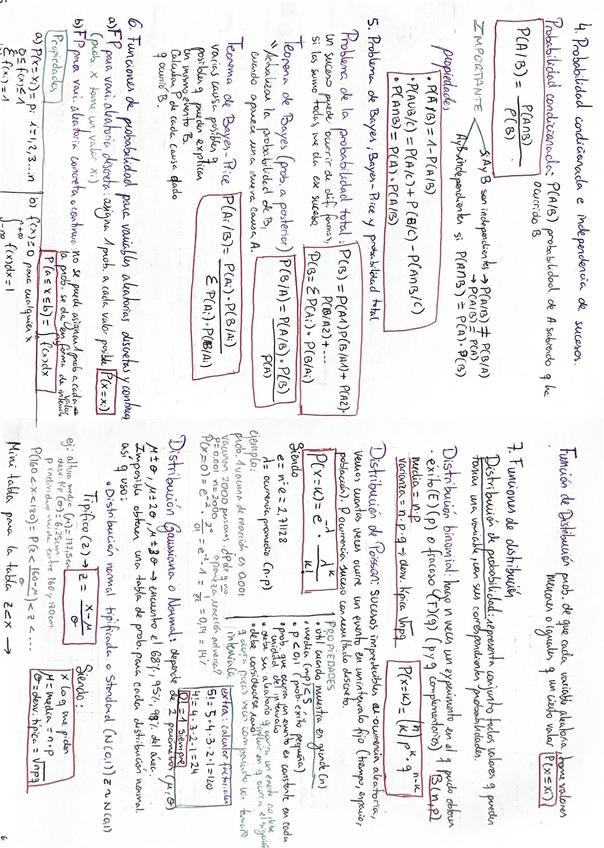 4. Probabilidad condicionada e independencia de sucesos.
Probabilidad condicionada: P(A/B) probabilidad de A sabiendo q he
ocurrido B.
P(A/B) = P(A∩B) / P(B)
IMPORTANTE
Si A y B son independientes → P(A/B) ≠ P(B/A)
→ P(A/B) = P(A)
A y B independiente si P(A∩B) = P(A)·P(B)
propiedades
• P(Ā/B) = 1 - P(A/B)
• P(A∪B/C) = P(A/C) + P(B/C) - P(A∩B/C)
• P(A∩B) = P(A)·P(A/B)
5. Problema de Bayes, Bayes-Price y probabilidad total
Problema de la probabilidad total:
un suceso puede ocurrir de dif. formas,
si las sumo todas me da ese suceso
P(B) = P(A1)P(B/A1) + P(A2)·
P(B/A2) + ...
P(B = Σ P(Ai)·P(B/Ai)
Teorema de Bayes (prob a posteriori)
"Actualizar la probabilidad de B,
cuando aparece una nueva causa A.
P(B/A) = P(A/B)·P(B) / P(A)
Teorema de Bayes-Price
varias causas posibles q
posibles q pueden explicar
un mismo evento B.
Calcular P de cada causa dado
q ocurrió B.
P(Ai/B) = P(Ai)·P(B/Ai) / Σ P(Ai)·P(B/Ai)
6. Funciones de probabilidad para variables aleatorias discretas y continua
a) FP para vari. aleatoria discreta: asigna 1 prob. a cada valor posible
(prob. X tome un valor xi) P(X=xi)
b) FP para vari. aleatoria concreta o continua: no se puede asignar 1 prob a cada valor
la prob. se da en forma de intervalo
P(a≤x≤b) = ∫ f(x)dx
Propiedades
a) P(X=xi) = pi i=1,2,3...n
0≤f(x)≤1
Σ f(x) = 1
b) f(x) ≥ 0 para cualquier x
∫ f(x)dx = 1
Función de Distribución prob. de que cada variable aleatoria tome valores
menores o iguales q un cierto valor P(X≤xi)
7. Funciones de distribución
Distribución de probabilidad: representa conjunto todos valores q pueden
tomar una variable, con sus correspondientes probabilidades.
Distribución binomial: hago n veces un experimento en el q puedo obtener
• éxito (E) (p) o fracaso (F) (q) (p y q complementarios) B(n,p)
media = n·p
varianza = n·p·q → desv. típica √npq
P(X=K) = (n K) p^K · q^(n-K)
Distribución de Poisson: sucesos impredecibles de ocurrencia aleatoria,
vemos cuantas veces ocurre un evento en un intervalo fijo (tiempo, espacio,
población). P ocurrencia suceso con resultado discreto.
P(X=K) = e^-λ · λ^K / K!
Siendo
e = nº e = 2,71128
λ = ocurrencia promedio (n·p)
PROPIEDADES
• útil cuando muestra en grande (n)
• media (np) < 5
• p < 0,1 (prob. éxito pequeña)
• prob. que ocurra un evento es constante en cada
unidad de intervalo
ejemplo:
prob 1 vacuna de reacción es 0.001
vacunan 2000 personas
p=0.001 n=2000
Distribución Gaussiana o Normal: depende de 2 parámetros (μ, σ)
μ±σ, μ±2σ, μ±3σ → encuentro el 68%, 95%, 98% del área.
Imposible obtener una tabla de prob. para cada distribución normal
así q uso:
• Distribución normal tipificada o Standard (N(0,1)) Z ~ N(0,1)
extra: calcular factoriales
5! = 5·4·3·2·1 = 120
4! = 4·3·2·1 = 24
0! = 1 siempre
Tipifico (z) → z = x-μ / σ
Siendo:
x lo q me piden
μ = media = n·p
σ = desv. típica = √npq
Mini tabla para la tabla z<x →
6